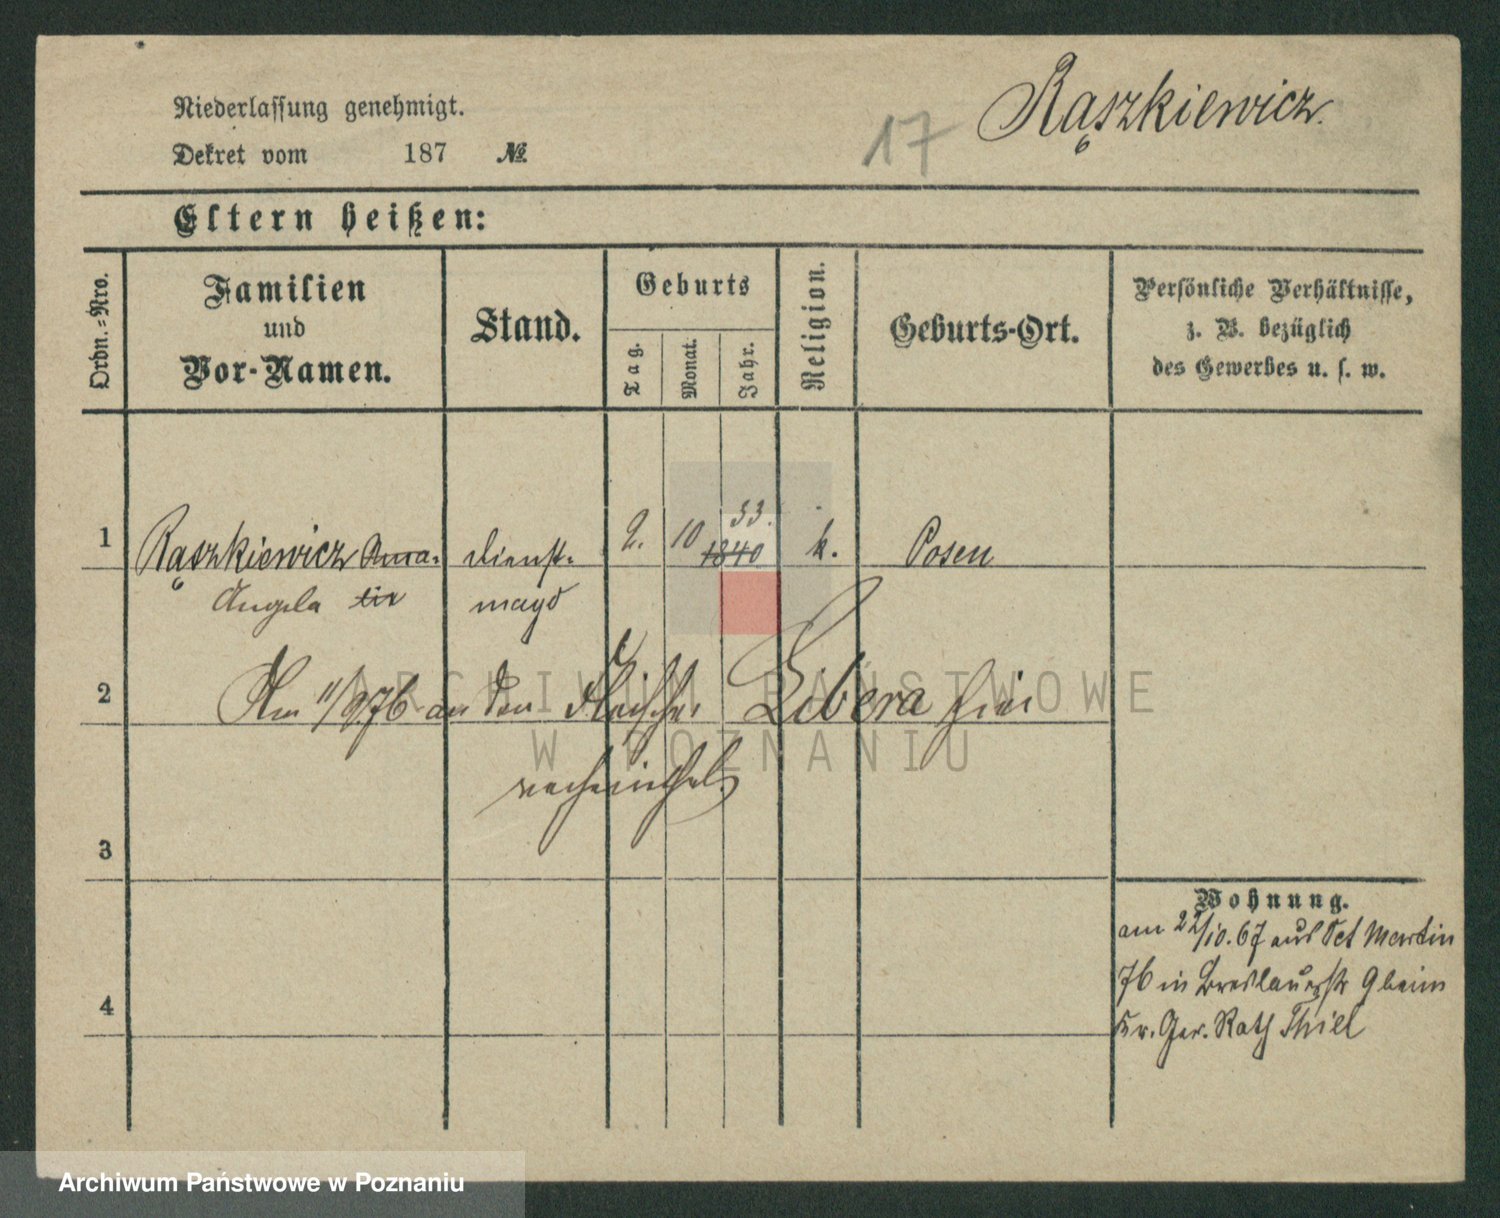 Rąszkiewicz.
17
Niederlassung genehmigt.
Dekret vom 187 №
Eltern heißen:
Ordn.=Nro.
Familien
und
Vor-Namen.
Stand.
Geburts
Tag.
Monat.
Jahr.
Religion.
Geburts-Ort.
Persönliche Verhältnisse,
z. B. bezüglich
des Gewerbes u. s. w.
33.
1 Rąszkiewicz Anna- Dienst- 2. 10 1840 k. Posen
Angela tir magd
2 Am 11/9 76 an den Fleischer Libera hier
verheirathet.
3
4
Wohnung.
am 22/10.67 aus Sct Martin
76 in Breslauerstr 9 beim
Kr. Ger. Rath Thiel
ARCHIWUM PAŃSTWOWE
W POZNANIU
Archiwum Państwowe w Poznaniu